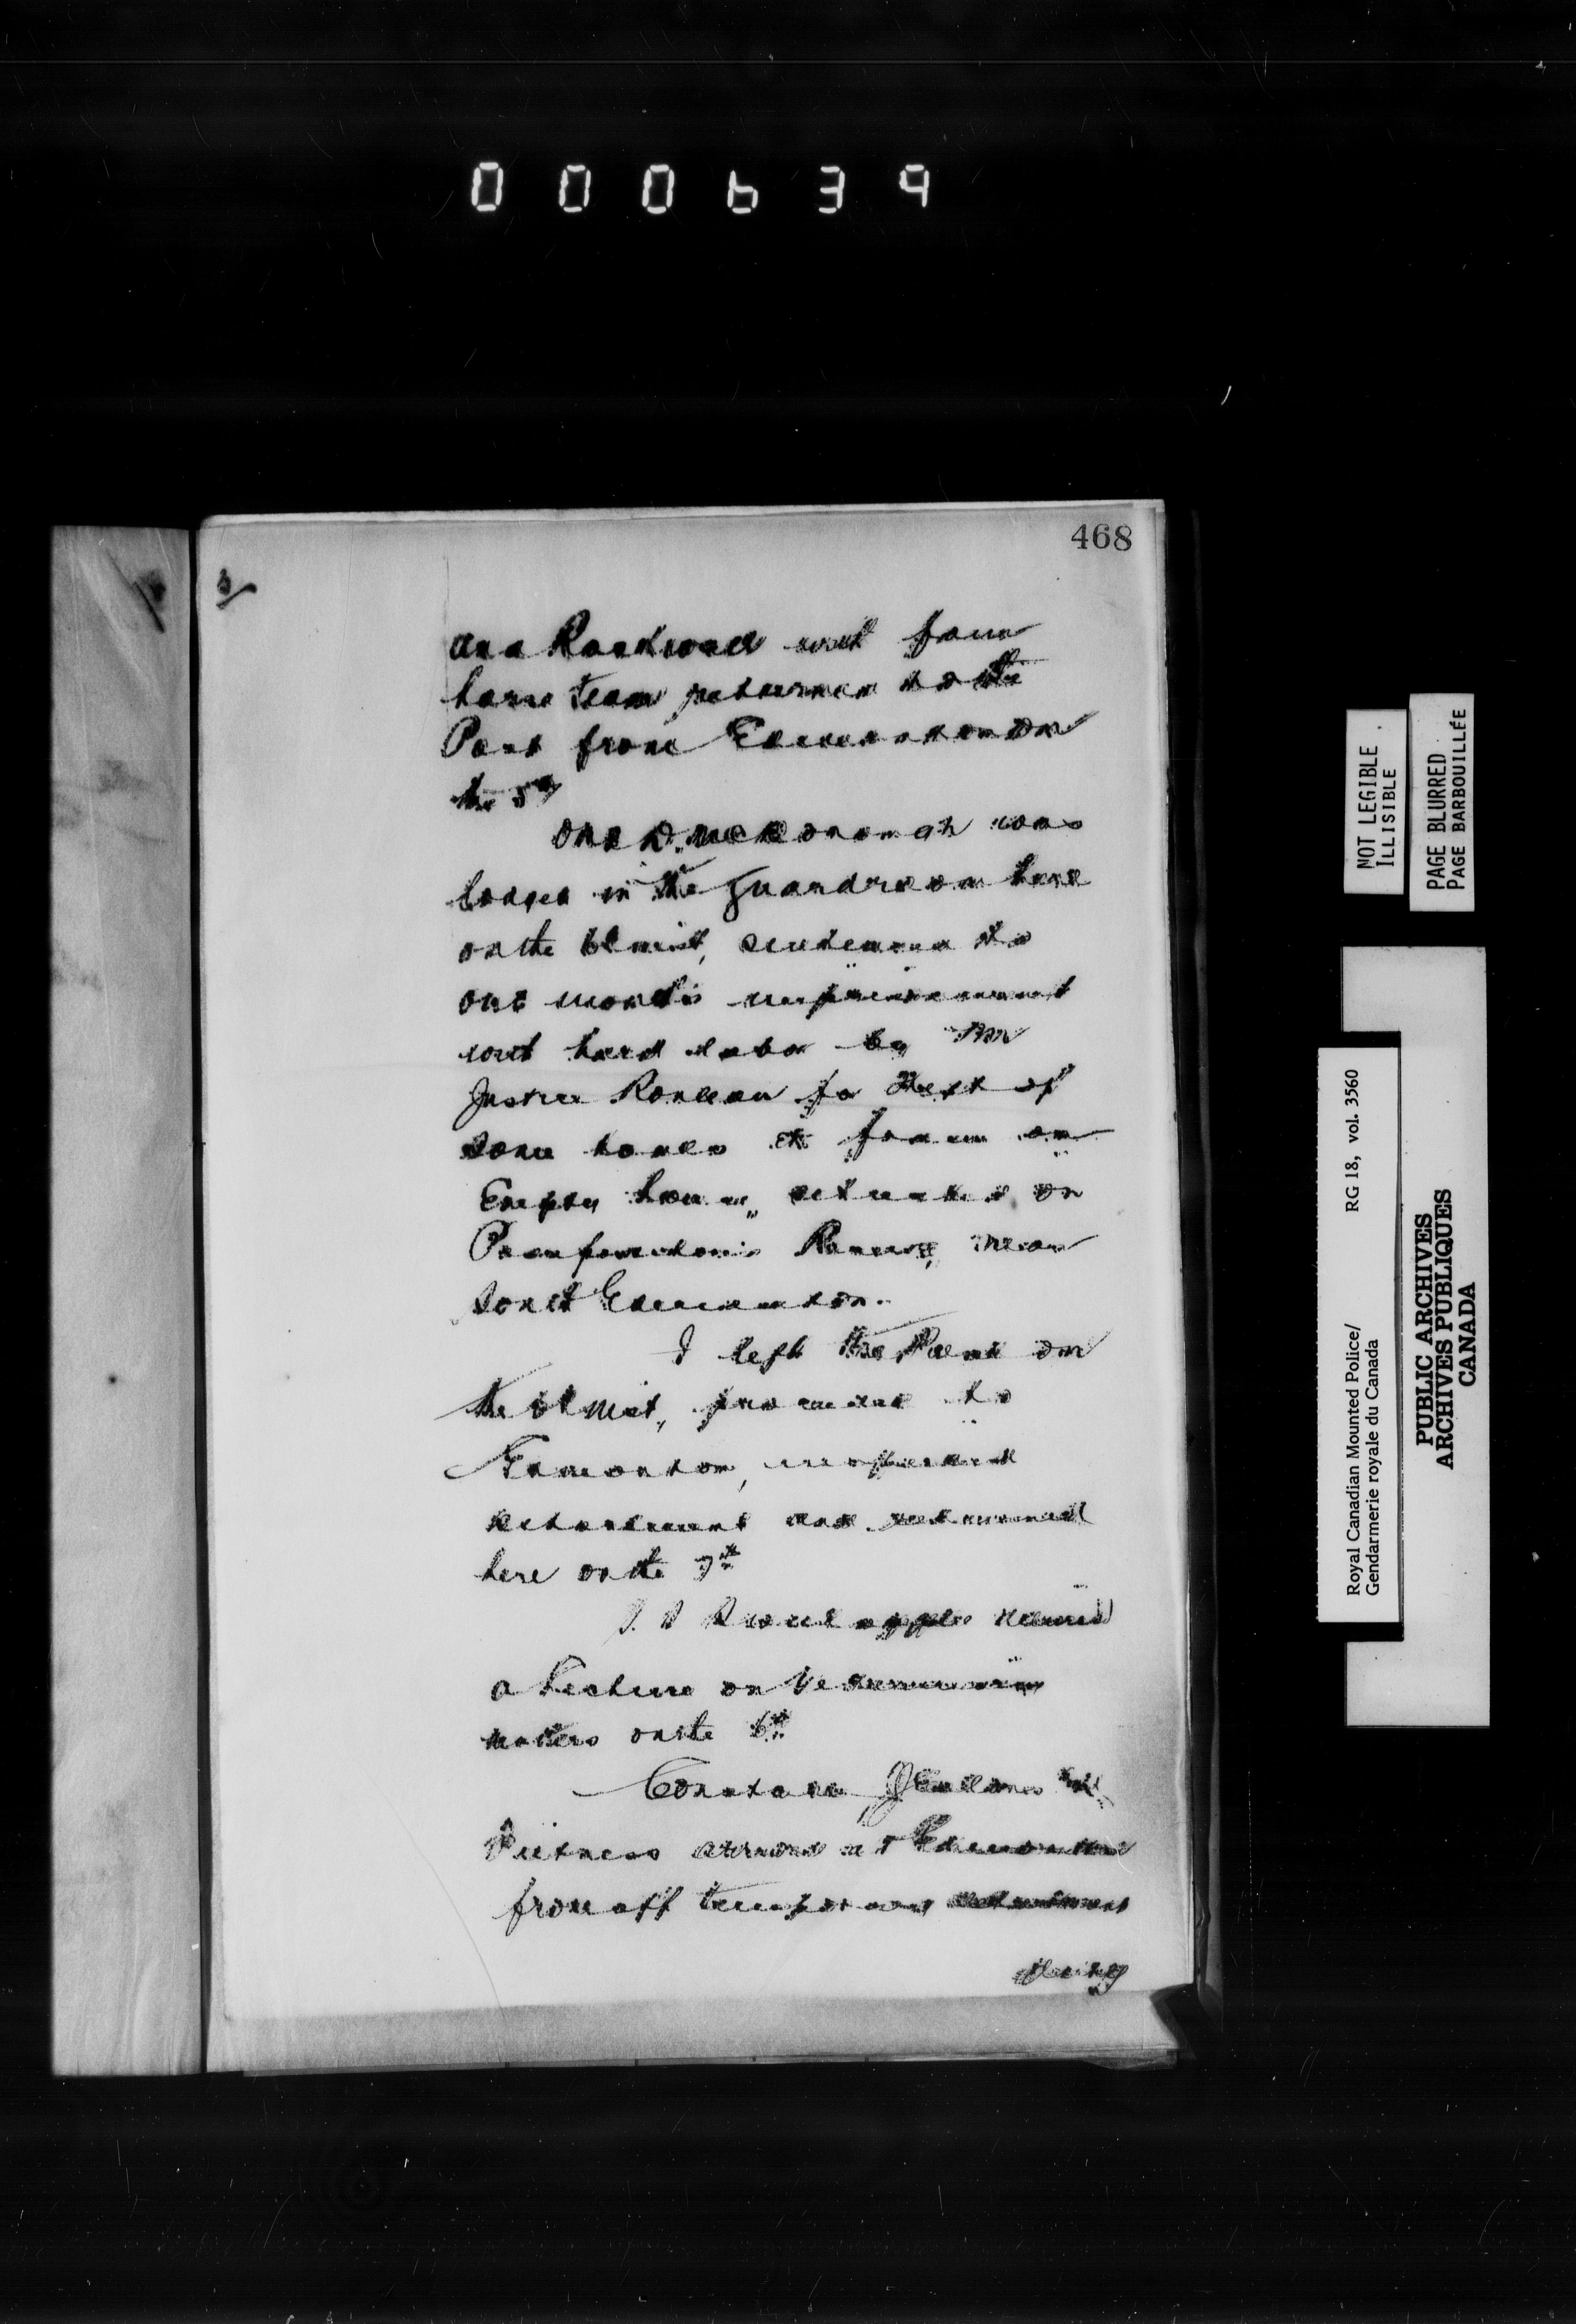 000639
468
3/
and Rockwood with four
horse team returned to the
Post from Edmonton on
the 5th
One D. was
lodged in the Guardroom here
on the inst, sentenced to
one months imprisonment
with hard labor by Mr
Justice Rouleau for theft of
some from an
Empty house, situated on
near
South Edmonton.
I left the Post on
the inst, proceeded to
Edmonton, inspected
detachment and returned
here on the 7th
J. A.
a Lecture on Veterinary
matters on the 6th
Constable
arrived at Edmonton
from off temporary detachment
during
NOT LEGIBLE
ILLISIBLE
PAGE BLURRED
PAGE BARBOUILLÉE
Royal Canadian Mounted Police/ RG 18, vol. 3560
Gendarmerie royale du Canada
PUBLIC ARCHIVES
ARCHIVES PUBLIQUES
CANADA